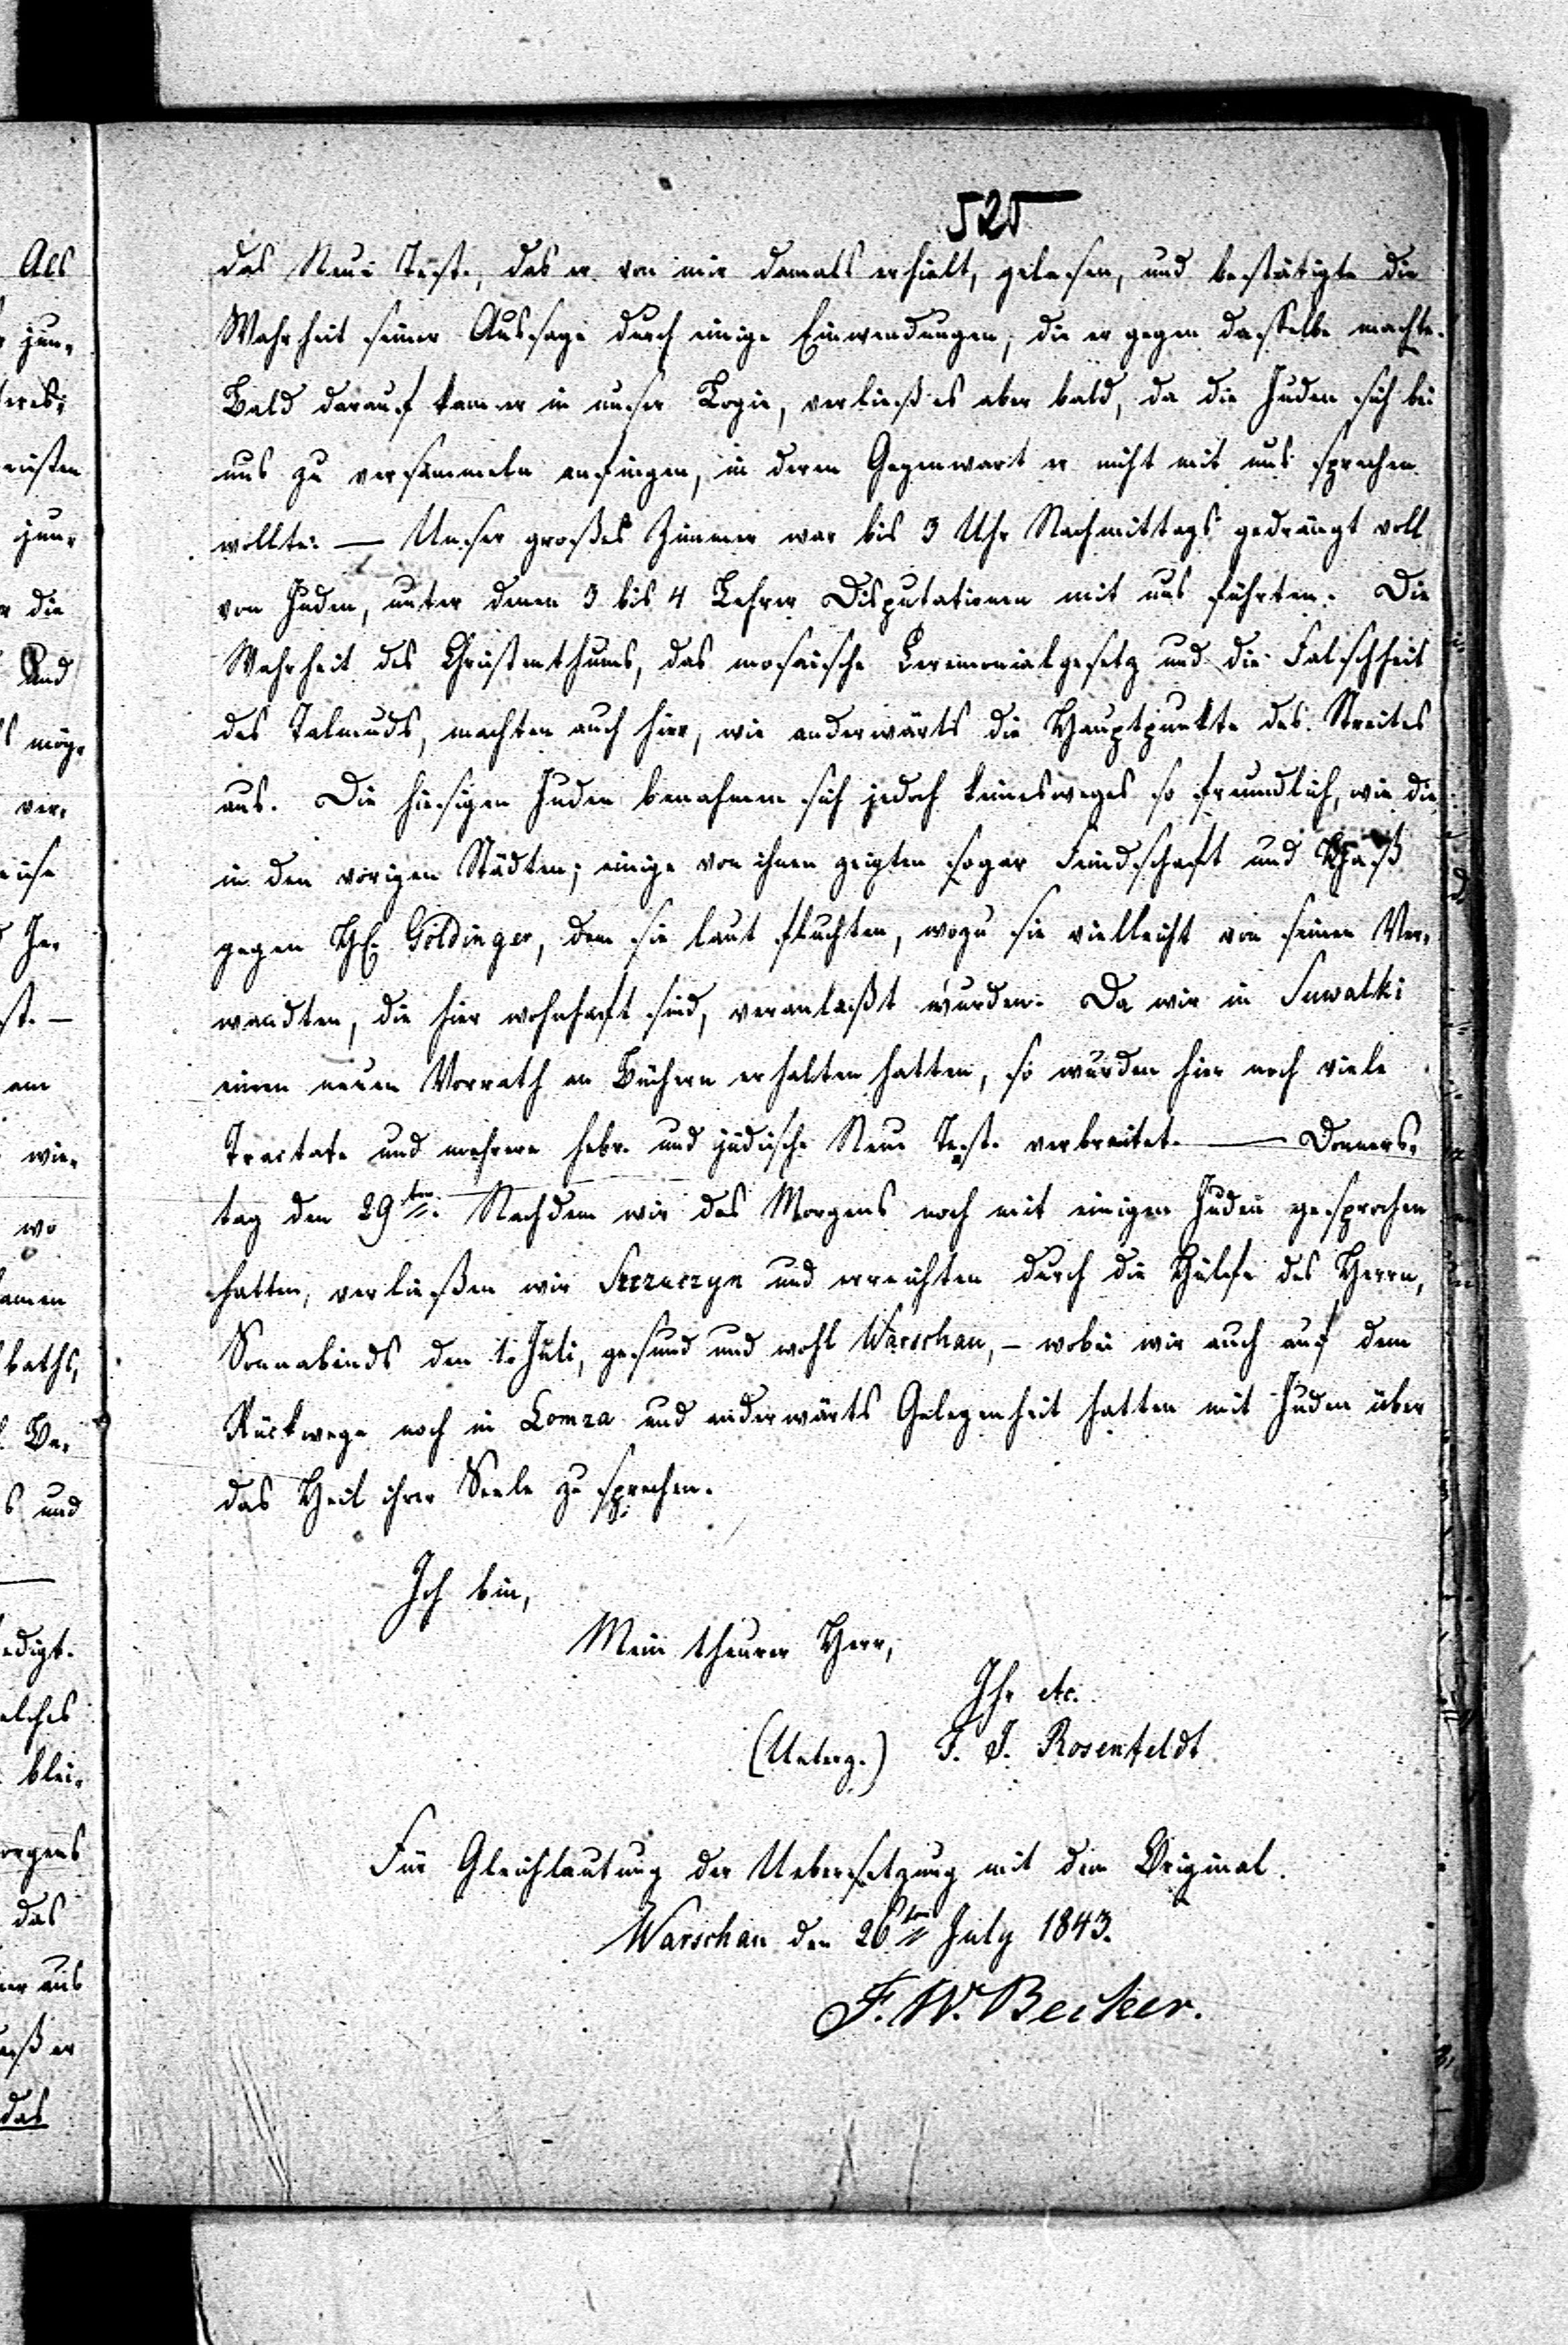 525
das Neue Test., das er von mir damals erhielt, gelesen, und bestätigte die
Wahrheit seiner Aussage durch einige Einwendungen, die er gegen dasselbe machte.
Bald darauf kam er in unser Logie, verließ es aber bald, da die Juden sich bei
uns zu versammeln anfingen, in deren Gegenwart er nicht mit uns sprechen
wollte. — Unser großes Zimmer war bis 3 Uhr Nachmittags gedrängt voll
von Juden, unter denen 3 bis 4 Lehrer Disputationen mit uns führten. Die
Wahrheit des Christenthums, das mosaische Ceremonialgesetz und die Falschheit
des Talmuds, machten auch hier, wie anderwärts die Hauptpunkte des Streites
aus. Die hiesigen Juden benahmen sich jedoch keinesweges so freundlich, wie die
in den vorigen Städten; einige von ihnen zeigten sogar Feindschaft und Haß
gegen H. Goldinger, dem sie laut fluchten, wozu sie vielleicht von seinen Ver-
wandten, die hier wohnhaft sind, veranlaßt wurden. Da wir in Suwalki
einen neuen Vorrath an Büchern erhalten hatten, so wurden hier noch viele
Tractate und mehrere hebr. und jüdische Neue Test. verbreitet. — Donners-
tag den 29ten. Nachdem wir des Morgens noch mit einigen Juden gesprochen
hatten, verließen wir Szczuczyn und erreichten durch die Hülfe des Herrn,
Sonnabends den 1. Juli, gesund und wohl Warschau, – wobei wir auch auf dem
Rückwege noch in Lomza und anderwärts Gelegenheit hatten mit Juden über
das Heil ihrer Seele zu sprechen.
Ich bin,
Mein theurer Herr,
Ihr etc.
(Unterz.) J. J. Rosenfeldt
Für Gleichlautung der Uebersetzung mit dem Original.
Warschau den 26ten July 1843.
F. W. Becker.